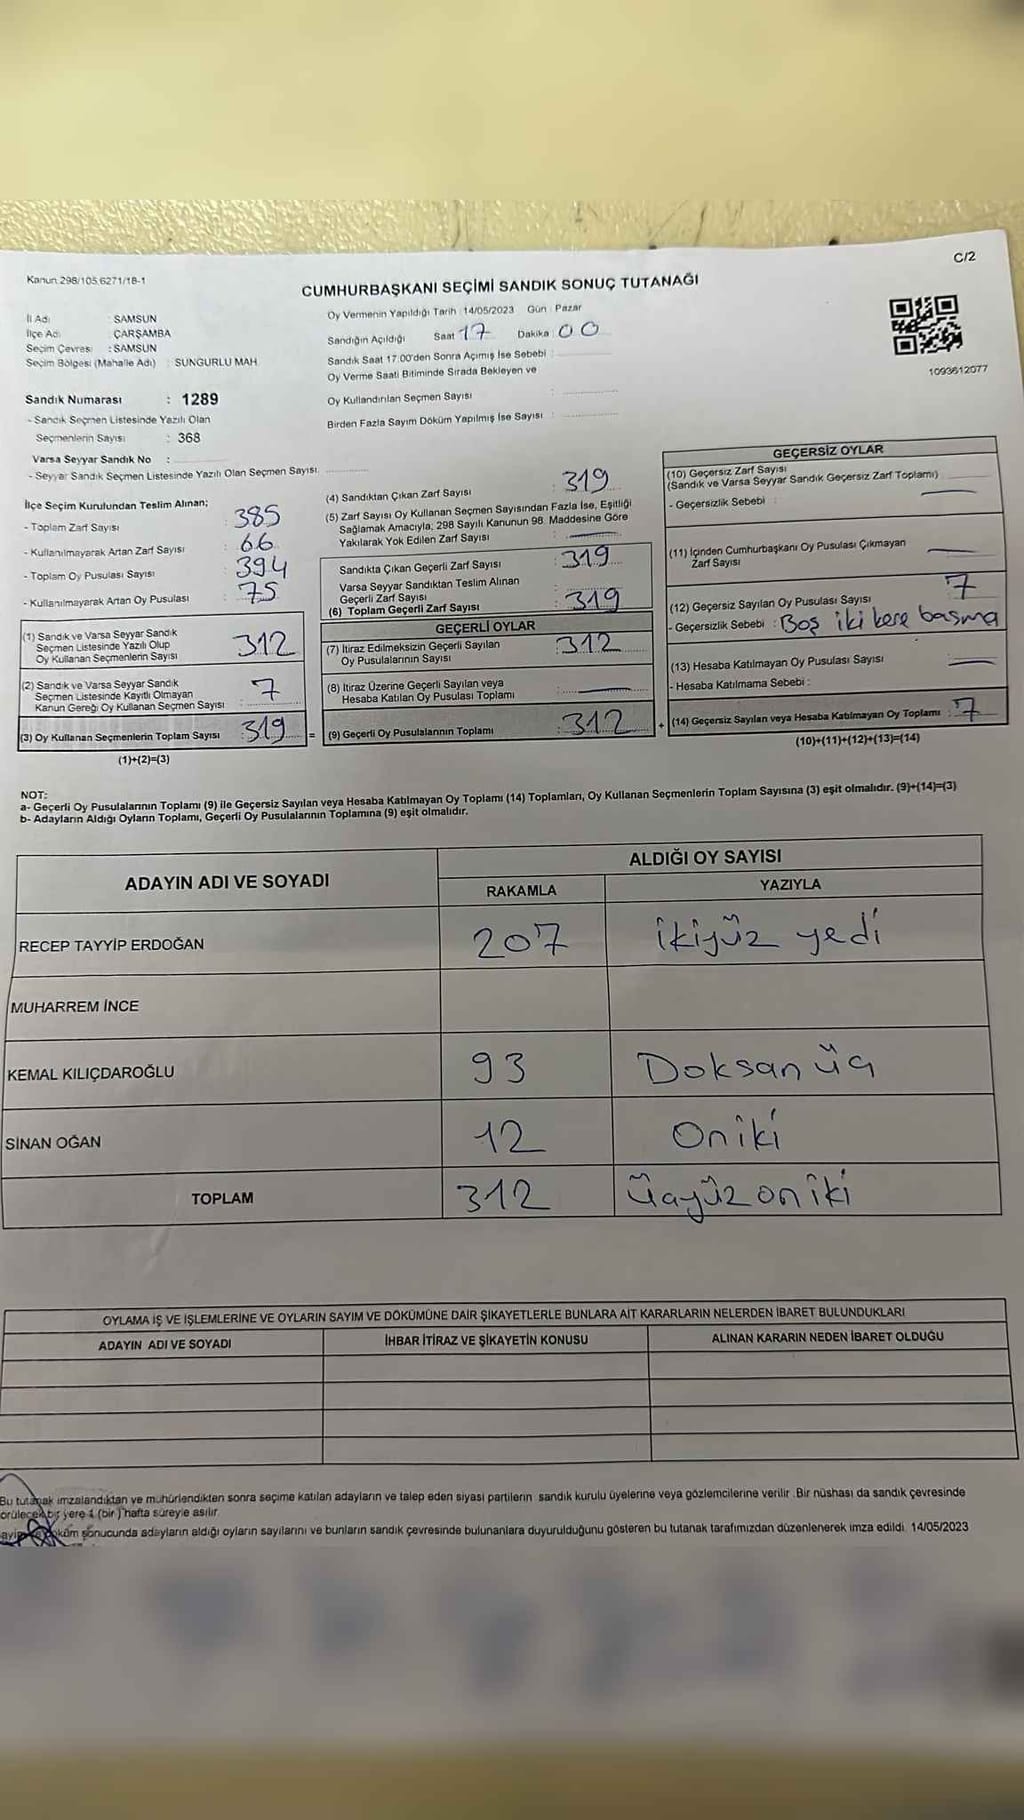 C/2
Kanun 298/105 6271/18-1
CUMHURBAŞKANI SEÇİMİ SANDIK SONUÇ TUTANAĞI
İl Adı : SAMSUN
İlçe Adı : ÇARŞAMBA
Seçim Çevresi : SAMSUN
Seçim Bölgesi (Mahalle Adı) : SUNGURLU MAH.
Sandık Numarası : 1289
- Sandık Seçmen Listesinde Yazılı Olan
Seçmenlerin Sayısı : 368
Varsa Seyyar Sandık No :
- Seyyar Sandık Seçmen Listesinde Yazılı Olan Seçmen Sayısı
Oy Vermenin Yapıldığı Tarih : 14/05/2023 Gün : Pazar
Sandığın Açıldığı Saat 17 Dakika 00
Sandık Saat 17:00'den Sonra Açımış İse Sebebi :
Oy Verme Saati Bitiminde Sırada Bekleyen ve
Oy Kullandırılan Seçmen Sayısı :
Birden Fazla Sayım Döküm Yapılmış İse Sayısı :
1093612077
İlçe Seçim Kurulundan Teslim Alınan;
- Toplam Zarf Sayısı : 385
- Kullanılmayarak Artan Zarf Sayısı : 66
- Toplam Oy Pusulası Sayısı : 394
- Kullanılmayarak Artan Oy Pusulası : 75
(1) Sandık ve Varsa Seyyar Sandık
Seçmen Listesinde Yazılı Olup
Oy Kullanan Seçmenlerin Sayısı : 312
(2) Sandık ve Varsa Seyyar Sandık
Seçmen Listesinde Kayıtlı Olmayan
Kanun Gereği Oy Kullanan Seçmen Sayısı : 7
(3) Oy Kullanan Seçmenlerin Toplam Sayısı : 319 =
(1)+(2)=(3)
(4) Sandıktan Çıkan Zarf Sayısı : 319
(5) Zarf Sayısı Oy Kullanan Seçmen Sayısından Fazla İse, Eşitliği
Sağlamak Amacıyla; 298 Sayılı Kanunun 98. Maddesine Göre
Yakılarak Yok Edilen Zarf Sayısı :
Sandıkta Çıkan Geçerli Zarf Sayısı : 319
Varsa Seyyar Sandıktan Teslim Alınan
Geçerli Zarf Sayısı :
(6) Toplam Geçerli Zarf Sayısı : 319
GEÇERLİ OYLAR
(7) İtiraz Edilmeksizin Geçerli Sayılan
Oy Pusulalarının Sayısı : 312
(8) İtiraz Üzerine Geçerli Sayılan veya
Hesaba Katılan Oy Pusulası Toplamı :
(9) Geçerli Oy Pusulalarının Toplamı : 312 +
GEÇERSİZ OYLAR
(10) Geçersiz Zarf Sayısı
(Sandık ve Varsa Seyyar Sandık Geçersiz Zarf Toplamı)
- Geçersizlik Sebebi :
(11) İçinden Cumhurbaşkanı Oy Pusulası Çıkmayan
Zarf Sayısı
(12) Geçersiz Sayılan Oy Pusulası Sayısı : 7
- Geçersizlik Sebebi : Boş iki kere basma
(13) Hesaba Katılmayan Oy Pusulası Sayısı
- Hesaba Katılmama Sebebi :
(14) Geçersiz Sayılan veya Hesaba Katılmayan Oy Toplamı : 7
(10)+(11)+(12)+(13)=(14)
NOT:
a- Geçerli Oy Pusulalarının Toplamı (9) ile Geçersiz Sayılan veya Hesaba Katılmayan Oy Toplamı (14) Toplamları, Oy Kullanan Seçmenlerin Toplam Sayısına (3) eşit olmalıdır. (9)+(14)=(3)
b- Adayların Aldığı Oyların Toplamı, Geçerli Oy Pusulalarının Toplamına (9) eşit olmalıdır.
ADAYIN ADI VE SOYADI ALDIĞI OY SAYISI
RAKAMLA YAZIYLA
RECEP TAYYİP ERDOĞAN 207 ikiyüz yedi
MUHARREM İNCE
KEMAL KILIÇDAROĞLU 93 Doksan üç
SİNAN OĞAN 12 Oniki
TOPLAM 312 üçyüz oniki
OYLAMA İŞ VE İŞLEMLERİNE VE OYLARIN SAYIM VE DÖKÜMÜNE DAİR ŞİKAYETLERLE BUNLARA AİT KARARLARIN NELERDEN İBARET BULUNDUKLARI
ADAYIN ADI VE SOYADI İHBAR İTİRAZ VE ŞİKAYETİN KONUSU ALINAN KARARIN NEDEN İBARET OLDUĞU
Bu tutanak imzalandıktan ve mühürlendikten sonra seçime katılan adayların ve talep eden siyasi partilerin sandık kurulu üyelerine veya gözlemcilerine verilir. Bir nüshası da sandık çevresinde
görülecek bir yere 1 (bir) hafta süreyle asılır.
sonucunda adayların aldığı oyların sayılarını ve bunların sandık çevresinde bulunanlara duyurulduğunu gösteren bu tutanak tarafımızdan düzenlenerek imza edildi. 14/05/2023